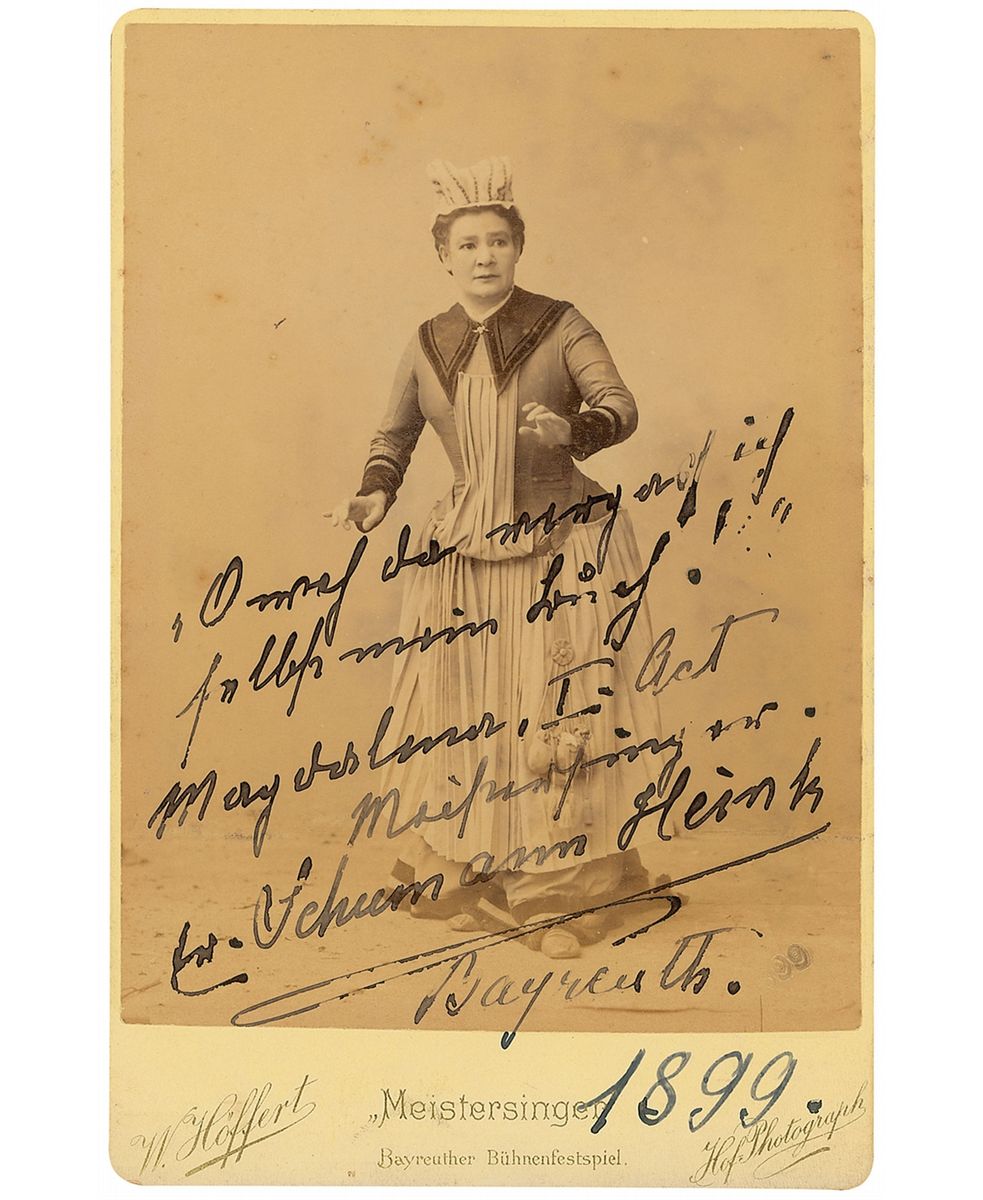 „O weh da vergaß ich
selbst mein Buch!!"
Magdalena, I. Act
Meistersinger.
Er. Schumann Heink
Bayreuth.
1899.
W. Höffert
„Meistersinger
Hof-Photograph
Bayreuther Bühnenfestspiel.